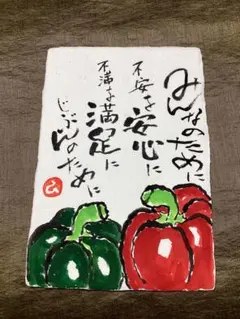 みんなのために
不安を安心に
不満を満足に
じぶんのために